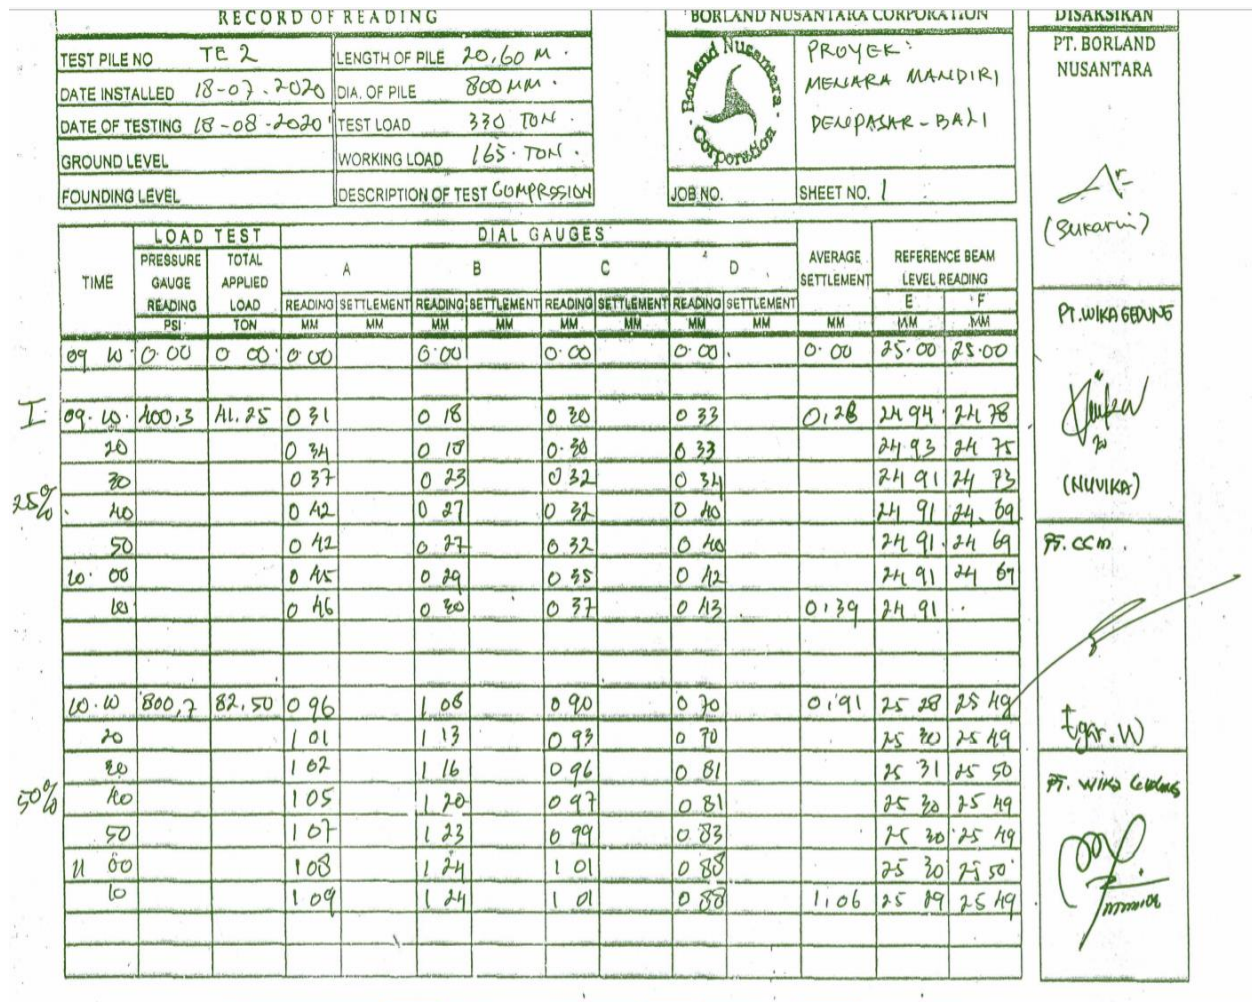 RECORD OF READING
TEST PILE NO TE 2 LENGTH OF PILE 20,60 M.
DATE INSTALLED 18-07-2020 DIA. OF PILE 800 MM.
DATE OF TESTING 18-08-2020 TEST LOAD 330 TON.
GROUND LEVEL WORKING LOAD 165. TON.
FOUNDING LEVEL DESCRIPTION OF TEST COMPRSSION
BORLAND NUSANTARA CORPORATION
Borland Nusantara Corporation
PROYEK:
MENARA MANDIRI
DENPASAR-BALI
JOB NO. SHEET NO. 1
DISAKSIKAN
PT. BORLAND
NUSANTARA
(Sukarin)
PT.WIKA GEDUNG
(NUVIKA)
PT. CCM.
Egar.W
PT. WIKA
LOAD TEST DIAL GAUGES
TIME PRESSURE GAUGE READING TOTAL APPLIED LOAD A B C D AVERAGE SETTLEMENT REFERENCE BEAM LEVEL READING
READING SETTLEMENT READING SETTLEMENT READING SETTLEMENT READING SETTLEMENT E F
PSI TON MM MM MM MM MM MM MM MM MM MM MM
09 10 0.00 0 00 0.00 0.00 0.00 0.00 0.00 25.00 25.00
I 09.10. 400,3 41.25 0 31 0 18 0 30 0 33 0,28 24 94 24 78
20 0 34 0 18 0.30 0 33 24 93 24 75
30 0 37 0 23 0 32 0 34 24 91 24 73
25% 40 0 42 0 27 0 32 0 40 24 91 24.69
50 0 42 0 27 0 32 0 40 24 91 24 69
10.00 0 45 0 29 0 35 0 42 24 91 24 67
10 0 46 0 30 0 37 0 43 0,39 24 91
10.10 800,7 82,50 0 96 1 08 0 90 0 70 0,91 25 28 25 49
20 1 01 1 13 0 93 0 70 25 30 25 49
30 1 02 1 16 0 96 0 81 25 31 25 50
50% 40 1 05 1 20 0 97 0 81 25 30 25 49
50 1 07 1 23 0 99 0 83 25 30 25 49
11 00 1 08 1 24 1 01 0 88 25 30 25 50
10 1 09 1 24 1 01 0 88 1,06 25 29 25 49